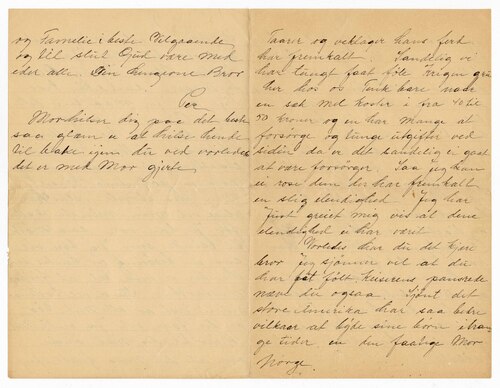 og Familie i beste Velgaaende
og til slut Gud være med
eder alle. Din hengivne Bror
Per
Mor hilser dig paa det beste
saa glem ei at huske henne
tilbake igjen du ved vorledes
det er med Mor gjerte
Taarer og veklager hans ferd
har fremkalt. Sandelig vi
har tungt faat føle krigen
her hos os Tenk bare naar
en sæk Mel koster i fra 40 til
50 kroner og en har mange at
forsørge og tunge utgifter ved
siden da er det sandelig ei gøit
at være forsørger. Saa jeg kan
ei rose dem der har fremkalt
en slig elendighed. Jeg har
just greiet mig vis at denne
elendighed ei har været
Vorledes har du det kjære
bror jeg skjønner vel at du
har fåt følt keiserens pansrede
næve du ogsaa. Skjønt det
store Amerika har saa bedre
vilkaar at byde sine børn i tran
ge tider en den fattige Mor
Norge.